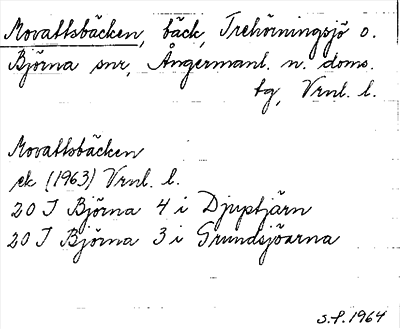 Movattsbäcken, bäck, Trehörningsjö o.
Björna snr, Ångermanl. n. doms.
tg, Vrnl. l.
Movattsbäcken
ek (1963) Vrnl. l.
20 I Björna 4 i Djuptjärn
20 I Björna 3 i Grundsjöarna
S.F. 1964